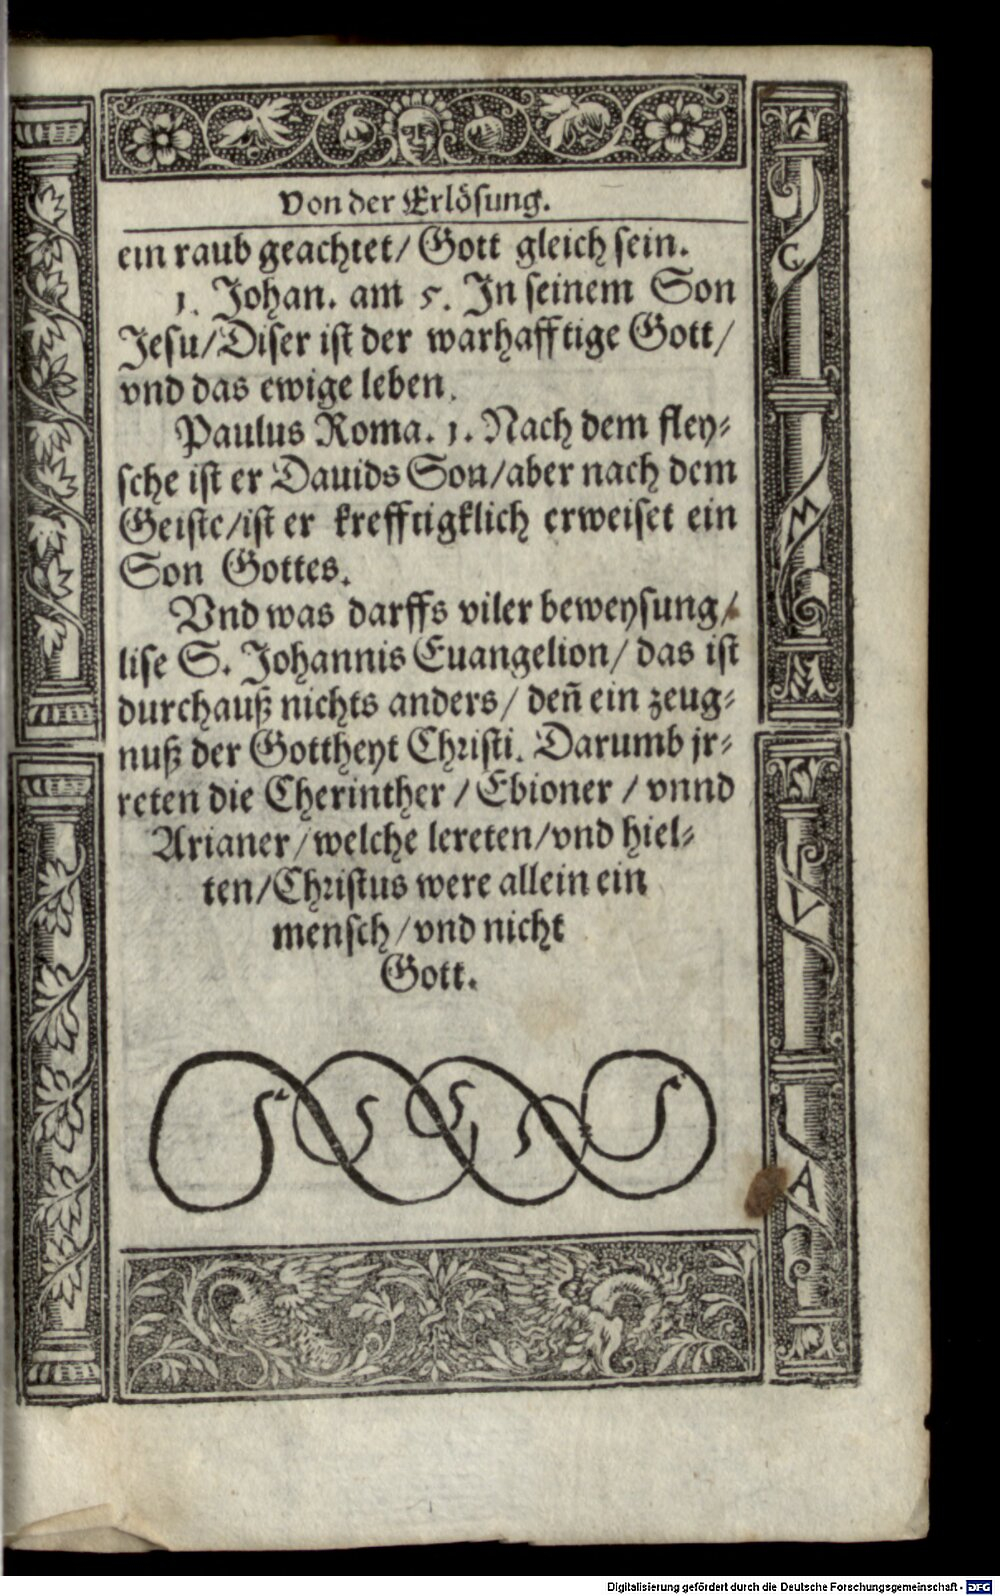 Von der Erlösung.
ein raub geachtet/ Gott gleich sein.
1. Johan. am 5. In seinem Son
Jesu/Diser ist der warhafftige Gott/
vnd das ewige leben.
Paulus Roma. 1. Nach dem fley-
sche ist er Dauids Son/aber nach dem
Geiste/ist er krefftigklich erweiset ein
Son Gottes.
Vnd was darffs viler beweysung/
lise S. Johannis Euangelion/ das ist
durchauß nichts anders/ deñ ein zeug-
nuß der Gottheyt Christi. Darumb jr-
reten die Cherinther / Ebioner / vnnd
Arianer/welche lereten/vnd hiel-
ten/Christus were allein ein
mensch/vnd nicht
Gott.
C
M
V
A
Digitalisierung gefördert durch die Deutsche Forschungsgemeinschaft - DFG